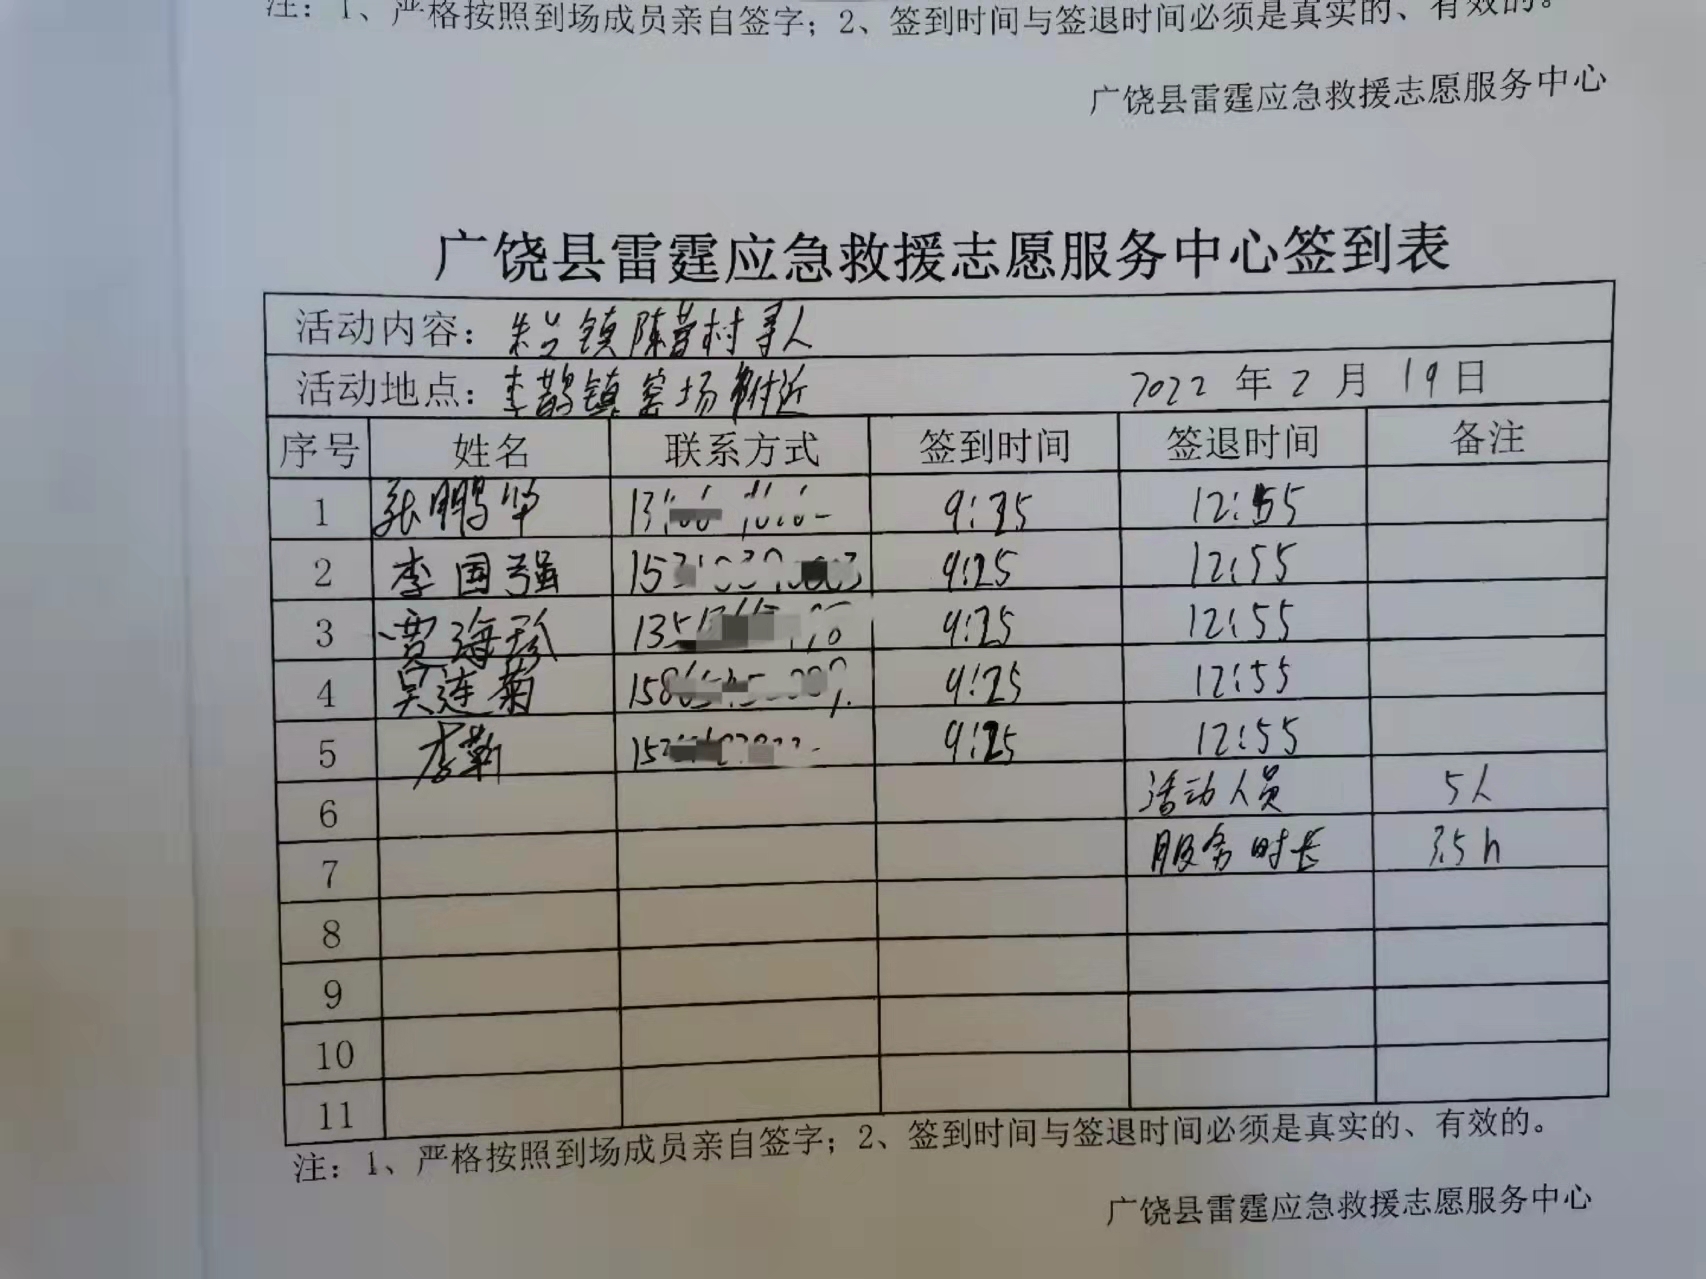 注：1、严格按照到场成员亲自签字；2、签到时间与签退时间必须是真实的、有效的。
广饶县雷霆应急救援志愿服务中心
广饶县雷霆应急救援志愿服务中心签到表
活动内容： 镇陈营村寻人
活动地点：李鹊镇 场附近 2022年2月19日
序号 姓名 联系方式 签到时间 签退时间 备注
1 张鹏华 9:25 12:55
2 李国强 9:25 12:55
3 贾海珍 9:25 12:55
4 吴连菊 9:25 12:55
5 李勤 9:25 12:55
6 活动人员 5人
7 服务时长 3.5h
8
9
10
11
注：1、严格按照到场成员亲自签字；2、签到时间与签退时间必须是真实的、有效的。
广饶县雷霆应急救援志愿服务中心